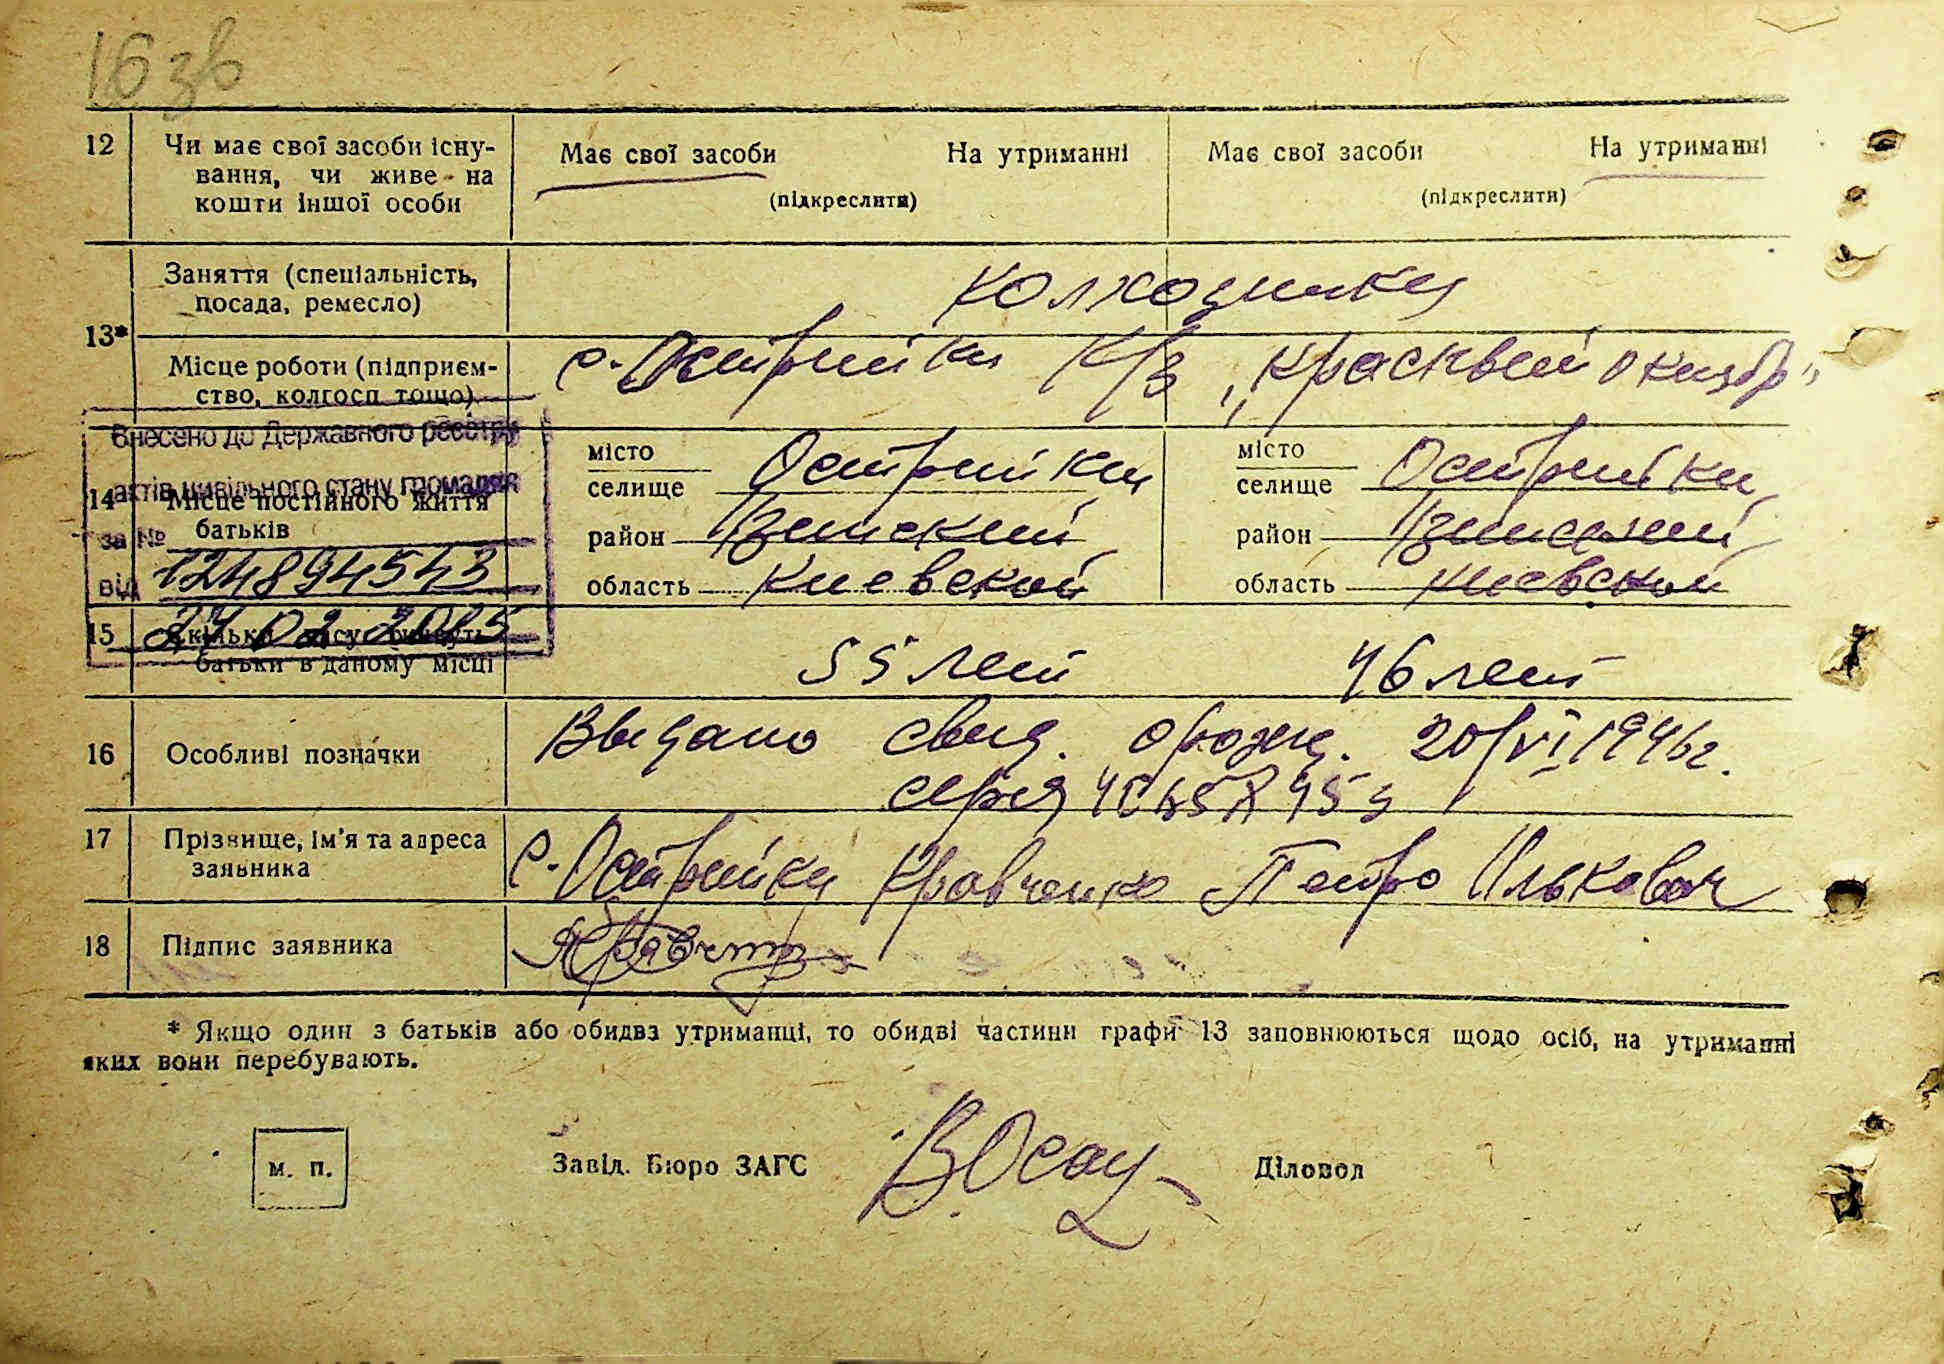 16 зв
12 Чи має свої засоби існу-
вання, чи живе на
кошти іншої особи
Має свої засоби На утриманні
(підкреслити)
Має свої засоби На утриманні
(підкреслити)
13*
Заняття (спеціальність,
посада, ремесло)
колхозники
Місце роботи (підприєм-
ство, колгосп тощо)
с. Острийки К/З „Красный
Внесено до Державного реєстру
актів цивільного стану громадян
за №
124894543
від
14 Місце постійного життя
батьків
місто
селище Острийки
район
область Киевской
місто
селище Острийки
район
область Киевской
15 Скільки часу живуть
батьки в даному місці
55 лет 46 лет
16 Особливі позначки
Выдано свид. о рожд. 20/VI 1946г.
серия
17 Прізвище, ім'я та адреса
заявника
с. Острийки Кравченко ПетроІлькович
18 Підпис заявника
* Якщо один з батьків або обидва утриманці, то обидві частини графи 13 заповнюються щодо осіб, на утриманні
яких вони перебувають.
м. п.
Завід. Бюро ЗАГС
Діловод